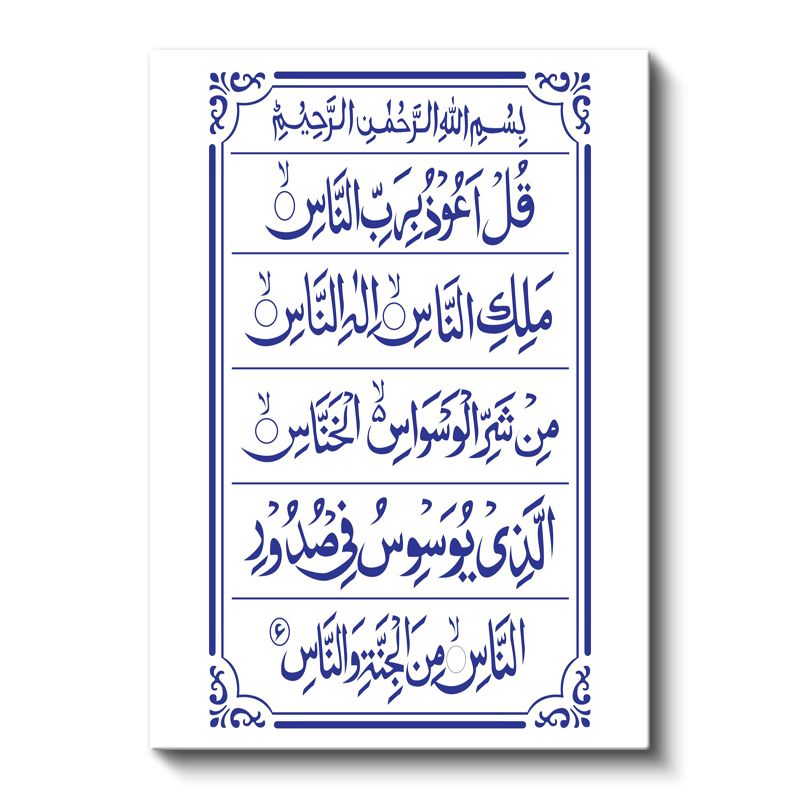 بِسْمِ اللهِ الرَّحْمٰنِ الرَّحِيْمِ
قُلْ اَعُوْذُ بِرَبِّ النَّاسِۙ
مَلِكِ النَّاسِۙ اِلٰهِ النَّاسِۙ
مِنْ شَرِّ الْوَسْوَاسِ ۙ۬ الْخَنَّاسِۙ
الَّذِیْ یُوَسْوِسُ فِیْ صُدُوْرِ
النَّاسِۙ مِنَ الْجِنَّةِ وَالنَّاسِ ع